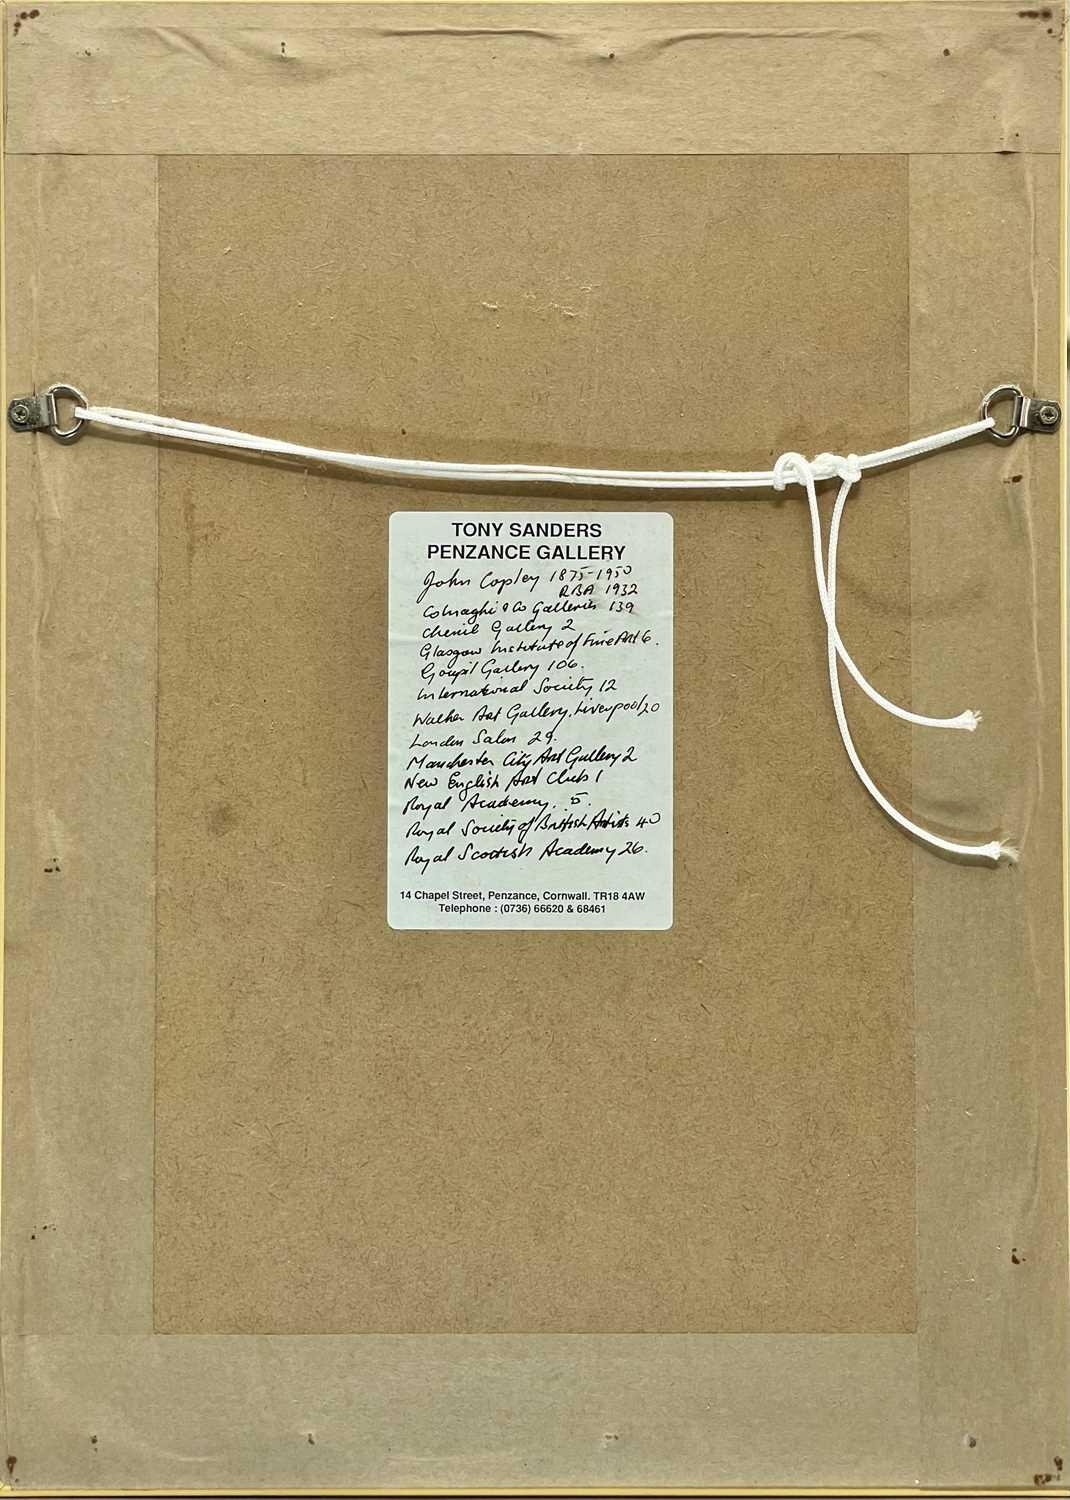 TONY SANDERS
PENZANCE GALLERY
John Copley 1875-1950
RBA 1932
Colnaghi & Co Galleries 139
Chenil Gallery 2
Glasgow Institute of Fine Art 6.
Goupil Gallery 106.
International Society 12
Walker Art Gallery, Liverpool 20
London Salon 29.
Manchester City Art Gallery 2
New English Art Club 1
Royal Academy. 5.
Royal Society of British Artists 40
Royal Scottish Academy 26.
14 Chapel Street, Penzance, Cornwall. TR18 4AW
Telephone : (0736) 66620 & 68461